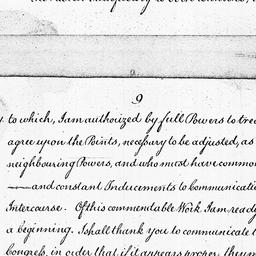 9
to which, I am authorized by full Powers to trea
agree upon the Points, necessary to be adjusted, as
neighbouring Powers, and who must have common
—and constant Inducements to Communicati
Intercourse. Of this commendable Work I am ready
a beginning. I shall thank you to communicate t
Congress, in order that if it appears proper, they m